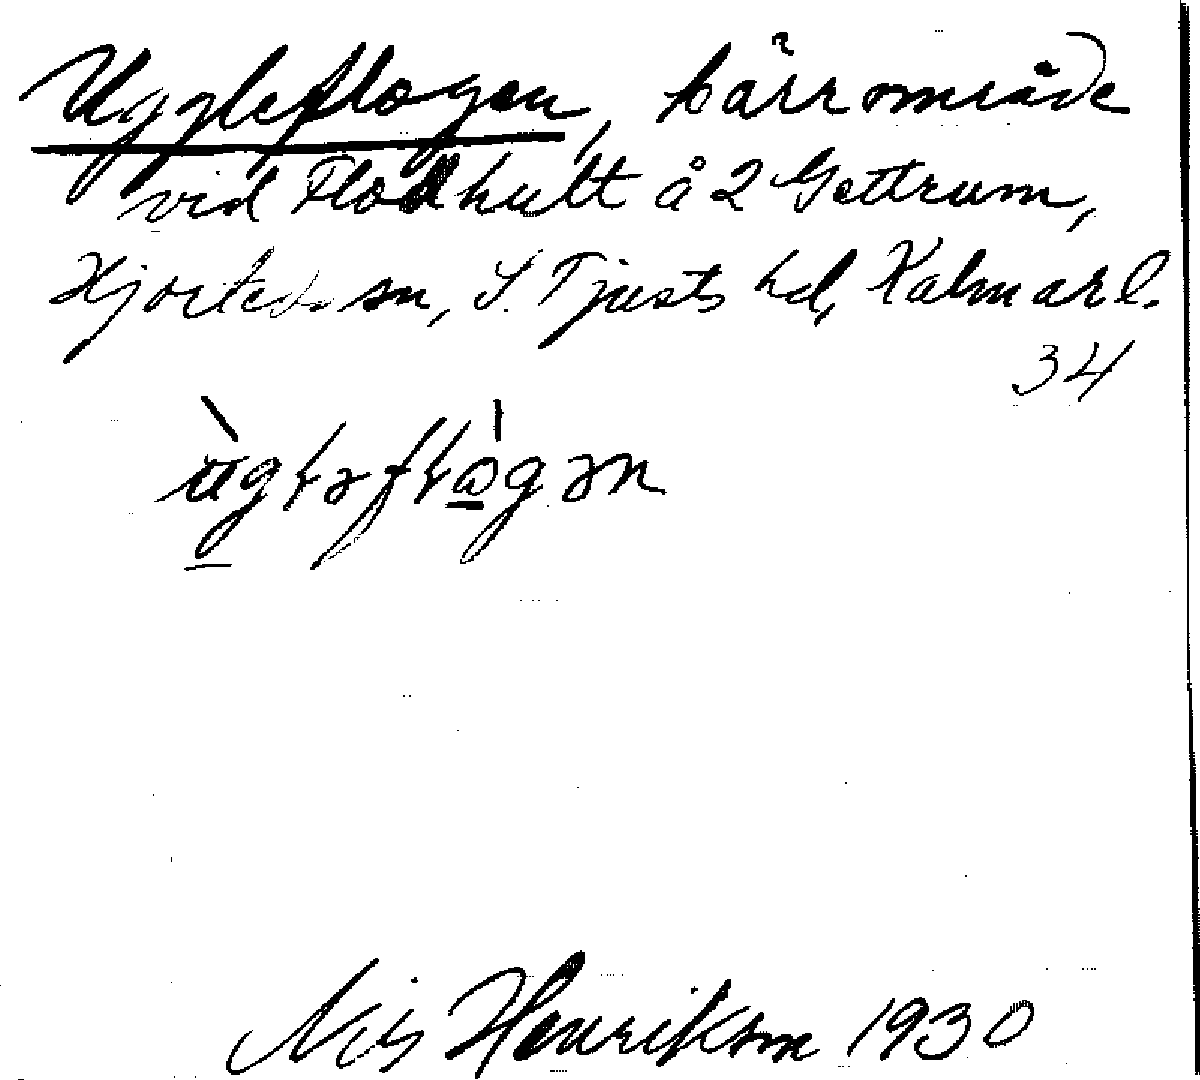 Uggleflogen, kärrområde
vid Flodhult å 2 Gettrum,
Hjorteds sn, S. Tjusts hd, Kalmar l.
34
Nils Henriksson 1930